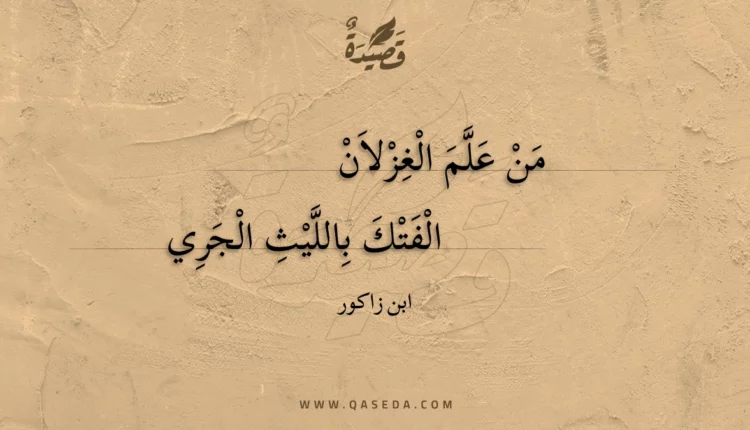 قَصِيْدَةٌ
مَنْ عَلَّمَ الْغِزْلاَنْ
الْفَتْكَ بِاللَّيْثِ الْجَرِي
ابن زاكور
WWW.QASEDA.COM